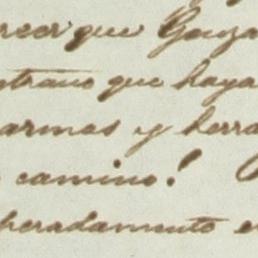 recer que Gonza
trano que haya
armas y herra
camino!
peradamente e